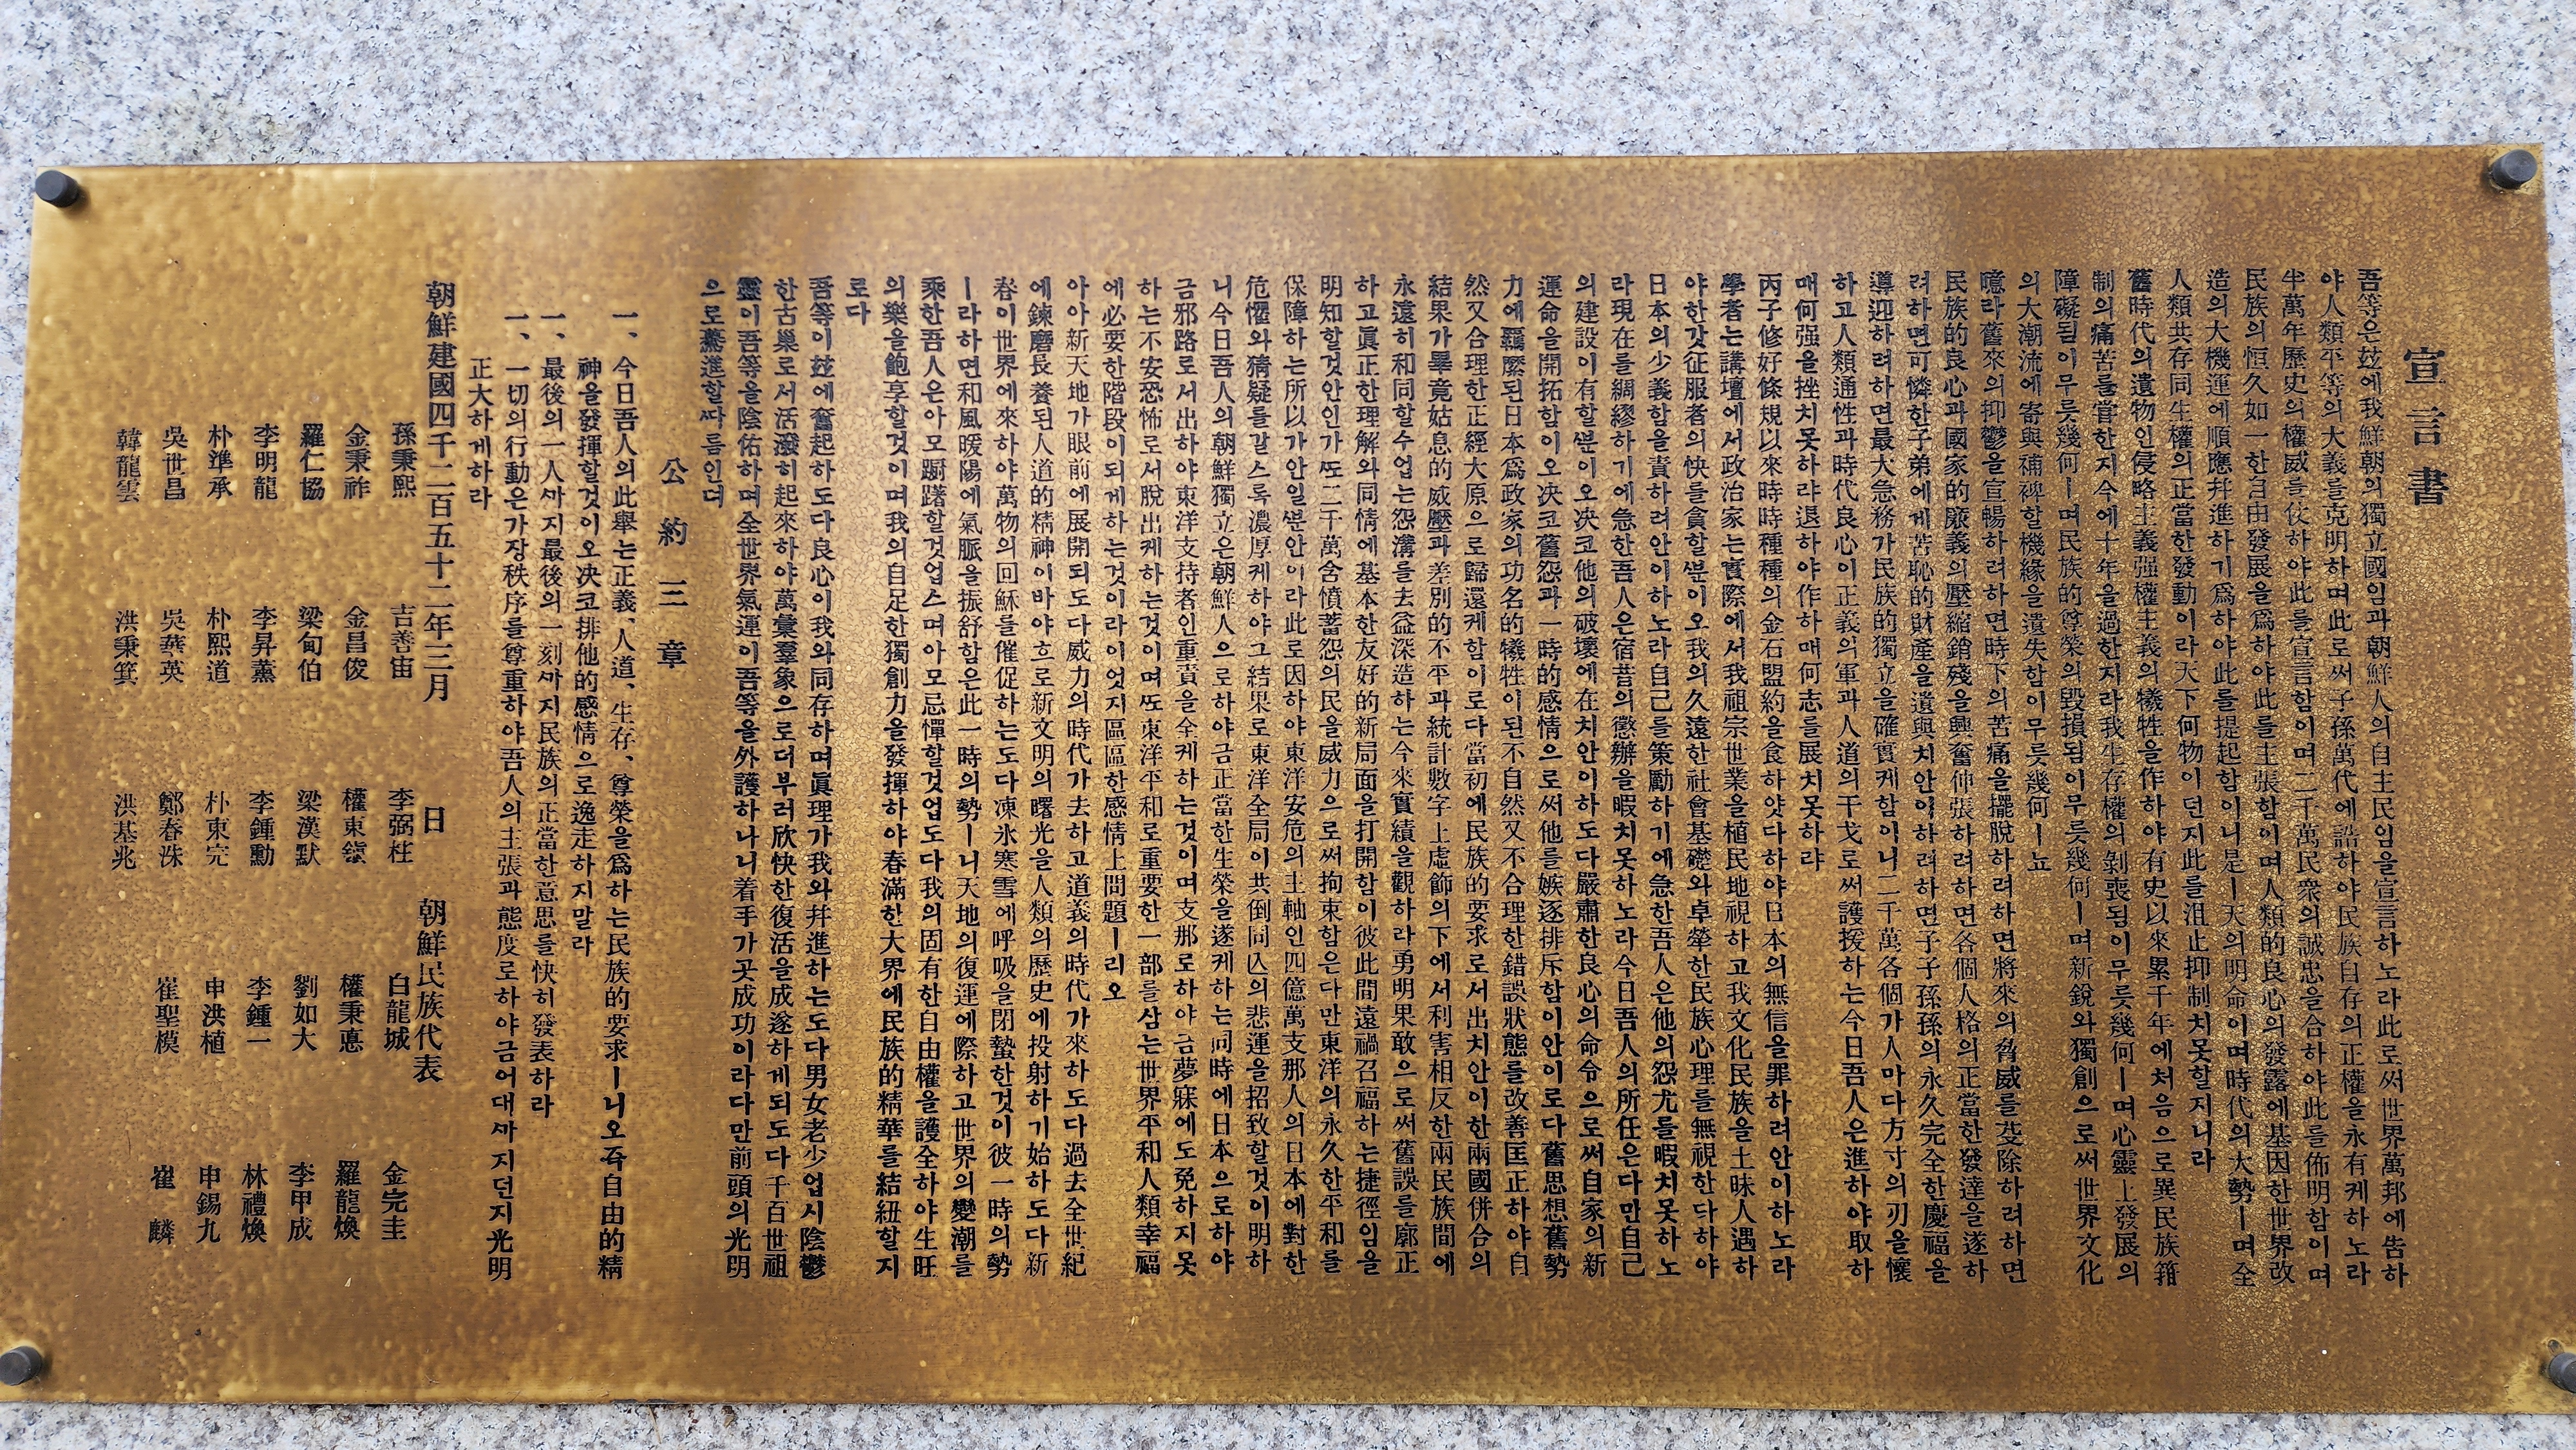 宣言書
吾等은玆에我鮮朝의獨立國임과朝鮮人의自主民임을宣言하노라此로써世界萬邦에告하
야人類平等의大義를克明하며此로써子孫萬代에誥하야民族自存의正權을永有케하노라
半萬年歷史의權威를仗하야此를宣言함이며二千萬民衆의誠忠을合하야此를佈明함이며
民族의恒久如一한自由發展을爲하야此를主張함이며人類的良心의發露에基因한世界改
造의大機運에順應幷進하기爲하야此를提起함이니是ㅣ天의明命이며時代의大勢ㅣ며全
人類共存同生權의正當한發動이라天下何物이던지此를沮止抑制치못할지니라
舊時代의遺物인侵略主義强權主義의犧牲을作하야有史以來累千年에처음으로異民族箝
制의痛苦를嘗한지今에十年을過한지라我生存權의剝喪됨이무릇幾何ㅣ며心靈上發展의
障礙됨이무릇幾何ㅣ며民族的尊榮의毁損됨이무릇幾何ㅣ며新銳와獨創으로써世界文化
의大潮流에寄與補裨할機緣을遺失함이무릇幾何ㅣ뇨
噫라舊來의抑鬱을宣暢하려하면時下의苦痛을擺脫하려하면將來의脅威를芟除하려하면
民族的良心과國家的廉義의壓縮銷殘을興奮伸張하려하면各個人格의正當한發達을遂하
려하면可憐한子弟에게苦恥的財產을遺與치안이하려하면子子孫孫의永久完全한慶福을
導迎하려하면最大急務가民族的獨立을確實케함이니二千萬各個가人마다方寸의刃을懷
하고人類通性과時代良心이正義의軍과人道의干戈로써護援하는今日吾人은進하야取하
매何强을挫치못하랴退하야作하매何志를展치못하랴
丙子修好條規以來時時種種의金石盟約을食하얏다하야日本의無信을罪하려안이하노라
學者는講壇에서政治家는實際에서我祖宗世業을植民地視하고我文化民族을土昧人遇하
야한갓征服者의快를貪할ᄲᅮᆫ이오我의久遠한社會基礎와卓犖한民族心理를無視한다하야
日本의少義함을責하려안이하노라自己를策勵하기에急한吾人은他의怨尤를暇치못하노
라現在를綢繆하기에急한吾人은宿昔의懲辦을暇치못하노라今日吾人의所任은다만自己
의建設이有할ᄲᅮᆫ이오決코他의破壞에在치안이하도다嚴肅한良心의命令으로써自家의新
運命을開拓함이오決코舊怨과一時的感情으로써他를嫉逐排斥함이안이로다舊思想舊勢
力에羈縻된日本爲政家의功名的犧牲이된不自然又不合理한錯誤狀態를改善匡正하야自
然又合理한正經大原으로歸還케함이로다當初에民族的要求로서出치안이한兩國倂合의
結果가畢竟姑息的威壓과差別的不平과統計數字上虛飾의下에서利害相反한兩民族間에
永遠히和同할수업는怨溝를去益深造하는今來實績을觀하라勇明果敢으로써舊誤를廓正
하고眞正한理解와同情에基本한友好的新局面을打開함이彼此間遠禍召福하는捷徑임을
明知할것안인가ᄯᅩ二千萬含憤蓄怨의民을威力으로써拘束함은다만東洋의永久한平和를
保障하는所以가안일ᄲᅮᆫ안이라此로因하야東洋安危의主軸인四億萬支那人의日本에對한
危懼와猜疑를갈스록濃厚케하야그結果로東洋全局이共倒同亾의悲運을招致할것이明하
니今日吾人의朝鮮獨立은朝鮮人으로하야금正當한生榮을遂케하는同時에日本으로하야
금邪路로서出하야東洋支持者인重責을全케하는것이며支那로하야금夢寐에도免하지못
하는不安恐怖로서脫出케하는것이며ᄯᅩ東洋平和로重要한一部를삼는世界平和人類幸福
에必要한階段이되게하는것이라이엇지區區한感情上問題ㅣ리오
아아新天地가眼前에展開되도다威力의時代가去하고道義의時代가來하도다過去全世紀
에鍊磨長養된人道的精神이바야흐로新文明의曙光을人類의歷史에投射하기始하도다新
春이世界에來하야萬物의回穌를催促하는도다凍氷寒雪에呼吸을閉蟄한것이彼一時의勢
ㅣ라하면和風暖陽에氣脈을振舒함은此一時의勢ㅣ니天地의復運에際하고世界의變潮를
乘한吾人은아모躕躇할것업스며아모忌憚할것업도다我의固有한自由權을護全하야生旺
의樂을飽享할것이며我의自足한獨創力을發揮하야春滿한大界에民族的精華를結紐할지
로다
吾等이玆에奮起하도다良心이我와同存하며眞理가我와幷進하는도다男女老少업시陰鬱
한古巢로서活潑히起來하야萬彙羣象으로더부러欣快한復活을成遂하게되도다千百世祖
靈이吾等을陰佑하며全世界氣運이吾等을外護하나니着手가곳成功이라다만前頭의光明
으로驀進할ᄯᅡ름인뎌
公約三章
一、今日吾人의此擧는正義、人道、生存、尊榮을爲하는民族的要求ㅣ니오즉自由的精
神을發揮할것이오決코排他的感情으로逸走하지말라
一、最後의一人ᄭᅡ지最後의一刻ᄭᅡ지民族의正當한意思를快히發表하라
一、一切의行動은가장秩序를尊重하야吾人의主張과態度로하야금어대ᄭᅡ지던지光明
正大하게하라
朝鮮建國四千二百五十二年三月 日 朝鮮民族代表
孫秉熙 吉善宙 李弼柱 白龍城 金完圭
金秉祚 金昌俊 權東鎭 權秉悳 羅龍煥
羅仁協 梁甸伯 梁漢默 劉如大 李甲成
李明龍 李昇薰 李鍾勳 李鍾一 林禮煥
朴準承 朴熙道 朴東完 申洪植 申錫九
吳世昌 吳華英 鄭春洙 崔聖模 崔麟
韓龍雲 洪秉箕 洪基兆